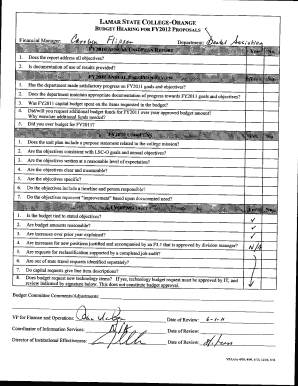 LAMAR STATE COLLEGE-ORANGE
BUDGET HEARING FOR FY2012 PROPOSALS
Financial Manager: Carolyn Flippen Department: Dental Assisting
Yes No
1. Does the report address all objectives?
2. Is documentation of use of results provided?
FY2011 ANNUAL
1. Has the department made satisfactory progress on FY2011 goals and objectives?
2. Does the department maintain appropriate documentation of progress towards FY2011 goals and objectives?
3. Was FY2011 capital budget spent on the items requested in the budget?
4. Did/will you request additional budget funds for FY2011 over your approved budget amount?
Why were/are additional funds needed?
5. Did you over budget for FY2011?
1. Does the unit plan include a purpose statement related to the college mission?
2. Are the objectives consistent with LSC-O goals and annual objectives?
3. Are the objectives written at a reasonable level of expectation?
4. Are the objectives clear and measurable?
5. Are the objectives specific?
6. Do the objectives include a timeline and person responsible?
7. Do the objectives represent "improvement" based upon documented need?
1. Is the budget tied to stated objectives?
2. Are budget amounts reasonable?
3. Are increases over prior year explained?
4. Are increases for new positions justified and accompanied by an F3.1 that is approved by division manager? N/A
5. Are requests for reclassification supported by a completed job audit?
6. Are out of state travel requests identified separately?
7. Do capital requests give line item descriptions?
8. Does budget request new technology items? If yes, technology budget request must be approved by IT, and
review indicated by signature below. This does not constitute budget approval.
Budget Committee Comments/Adjustments:
VP for Finance and Operations: Date of Review:
Coordinator of Information Services: N/A Date of Review:
Director of Institutional Effectiveness: Date of Review: